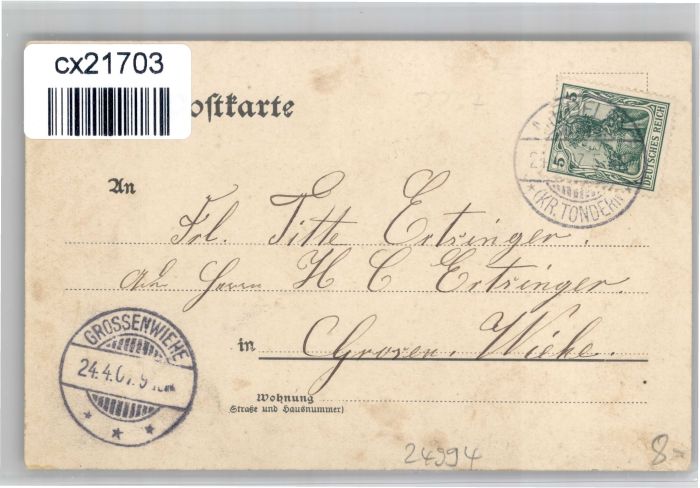 cx21703
Postkarte
5
5
DEUTSCHES REICH
* (KR. TONDERN)
An
Frl. Titte Ertsinger.
Herrn H C Ertsinger.
GROSSENWIEHE
24.4.07. 9
in Groren. Wiehe.
Wohnung
(Straße und Hausnummer)
24994
8